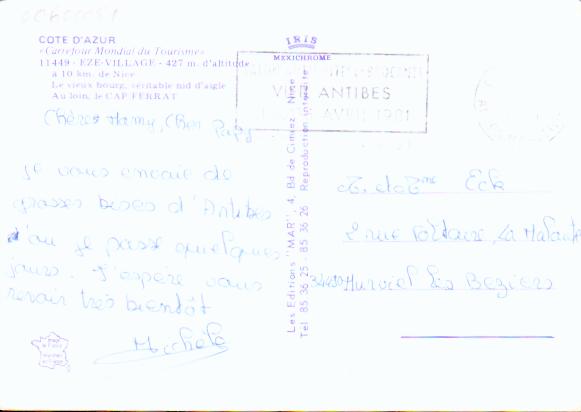 COTE D'AZUR
«Carrefour Mondial du Tourisme»
11449 - EZE-VILLAGE - 427 m. d'altitude
à 10 km. de Nice
Le vieux bourg, véritable nid d'aigle
Au loin, le CAP FERRAT
IRIS
MEXICHROME
ANTIBES
AVRIL 1981
Les Editions "MAR", 4, Bd de Cimiez - Nice
Tél 85 36 25 - 85 36 26 Reproduction interdite
Chère Mamy, Cher Papy
Je vous envoie de
grosses bises d'Antibes
d'où je passe quelques
jours. J'espère vous
revoir très bientôt
Michèle
M. et Mme Eck
2 rue Voltaire, La
34490 Murviel les Beziers